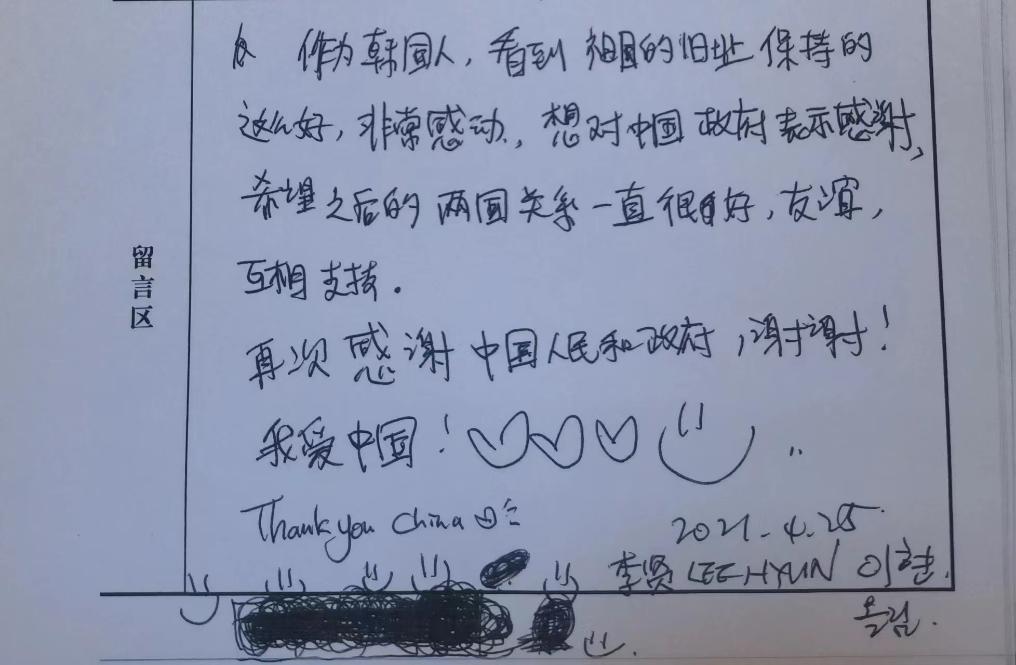 作为韩国人，看到祖国的旧址保持的
这么好，非常感动，想对中国政府表示感谢，
希望之后的两国关系一直很好，友谊，
互相支持。
再次感谢中国人民和政府，谢谢！
我爱中国！
Thank you China
2021.4.25
李贤 LEE HYUN 이현
올림.
留言区